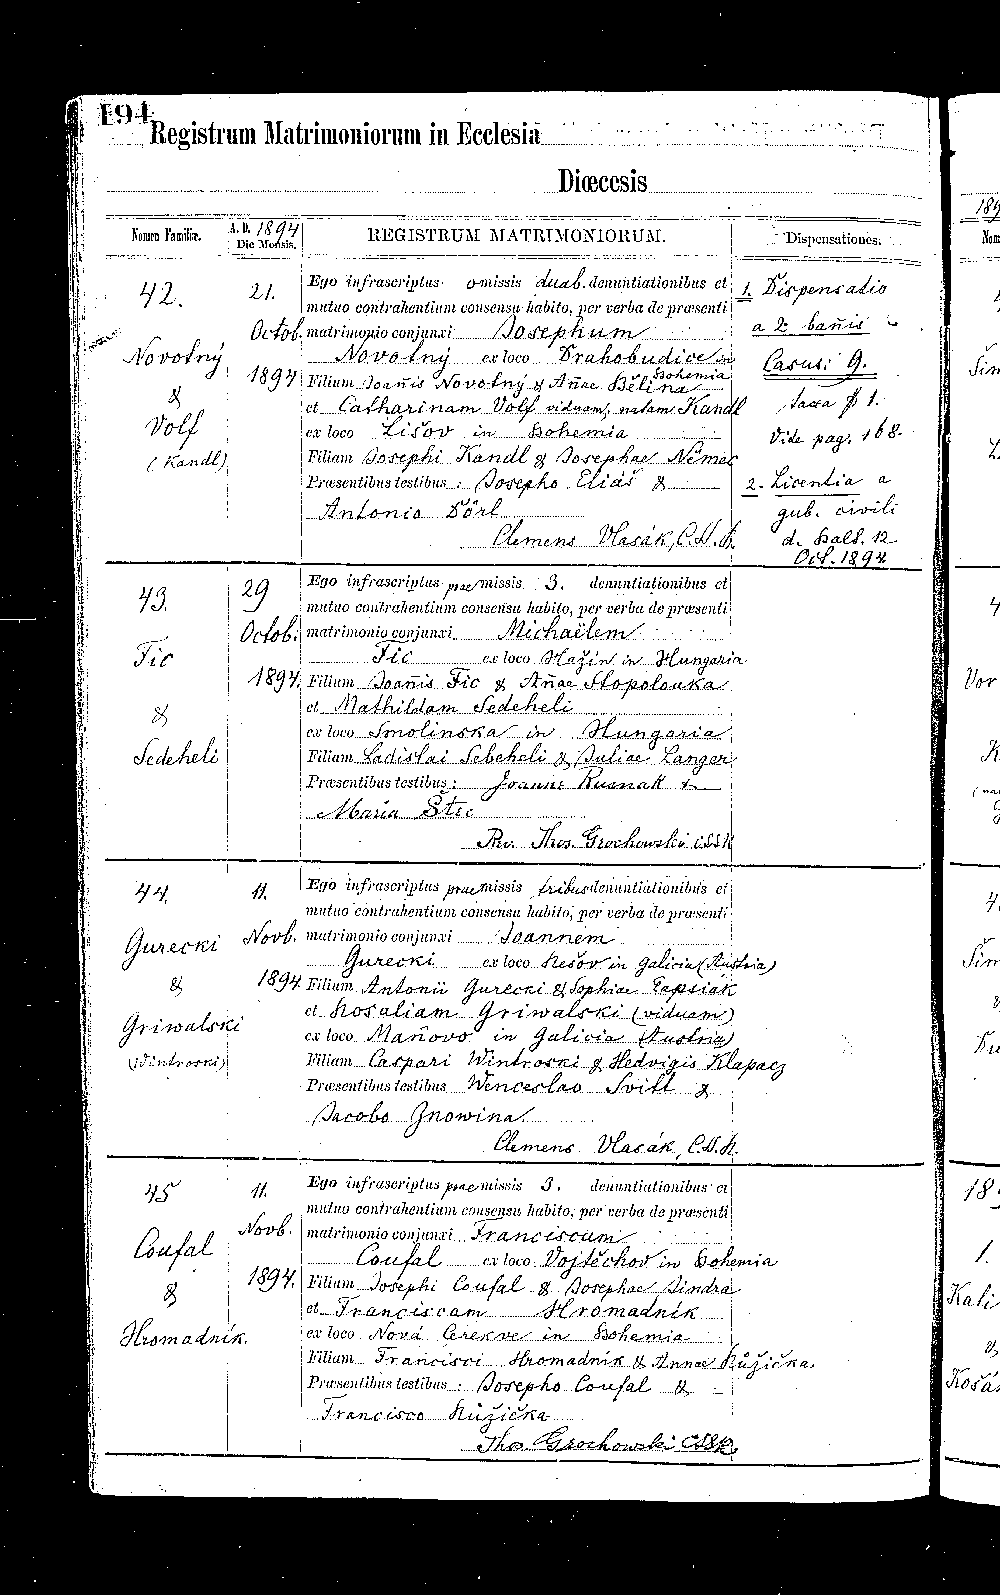 194
Registrum Matrimoniorum in Ecclesia
Diœcesis
Nomen Familiæ.
A. D. 1894
Die Mensis.
REGISTRUM MATRIMONIORUM.
Dispensationes.
42.
Novotný
&
Volf
(Kandl)
21.
Octob.
1894
Ego infrascriptus omissis duab. denuntiationibus et
mutuo contrahentium consensu habito, per verba de præsenti
matrimonio conjunxi Josephum
Novotný ex loco Drahobudice in
Bohemia
Filium Joañis Novotný & Añae Bělina
et Catharinam Volf viduam, natam Kandl
ex loco Lišov in Bohemia
Filiam Josephi Kandl & Josephae Němec
Præsentibus testibus: Josepho Eliáš &
Antonio Dörl
Clemens Vlasák, C.S.S.R.
1. Dispensatio
a 2 bañis
Casus: 9.
taxa $ 1.
Vide pag. 168.
2. Licentia a
gub. civili
d. Balt. 12
Oct. 1894
43.
Fic
&
Sedeheli
29
Octob.
1894.
Ego infrascriptus praemissis 3. denuntiationibus et
mutuo contrahentium consensu habito, per verba de præsenti
matrimonio conjunxi Michaëlem
Fic ex loco Hažin in Hungaria
Filium Joañis Fic & Añae Stopolouka
et Mathildam Sedeheli
ex loco Smolinska in Hungaria
Filiam Ladislai Sebeheli & Juliae Langer
Præsentibus testibus: Joanne Rusnak &
Maria Štec
Rev. Thos. Grochowski CSSR
44.
Gurecki
&
Griwalski
(Wintroski)
11.
Novb.
1894
Ego infrascriptus praemissis tribus denuntiationibus et
mutuo contrahentium consensu habito, per verba de præsenti
matrimonio conjunxi Joannem
Gurecki ex loco Rešov in Galicia (Austria)
Filium Antonii Gurecki & Sophiae Tapsiák
et Rosaliam Griwalski (viduam)
ex loco Mañovo in Galicia (Austria)
Filiam Caspari Wintroski & Hedvigis Klapacz
Præsentibus testibus Wenceslao Svitl &
Jacobo Znowina.
Clemens Vlasák, C.S.S.R.
45
Coufal
&
Hromadnik.
11.
Novb.
1894.
Ego infrascriptus praemissis 3. denuntiationibus et
mutuo contrahentium consensu habito, per verba de præsenti
matrimonio conjunxi Franciscum
Coufal ex loco Vojtěchov in Bohemia
Filium Josephi Coufal & Josephae Jindra
et Franciscam Hromadnik
ex loco Nová Cerekve in Bohemia
Filiam Francisci Hromadnik & Annae Růžička
Præsentibus testibus: Josepho Coufal &
Francisco Růžička
Thos. Grochowski CSSR.